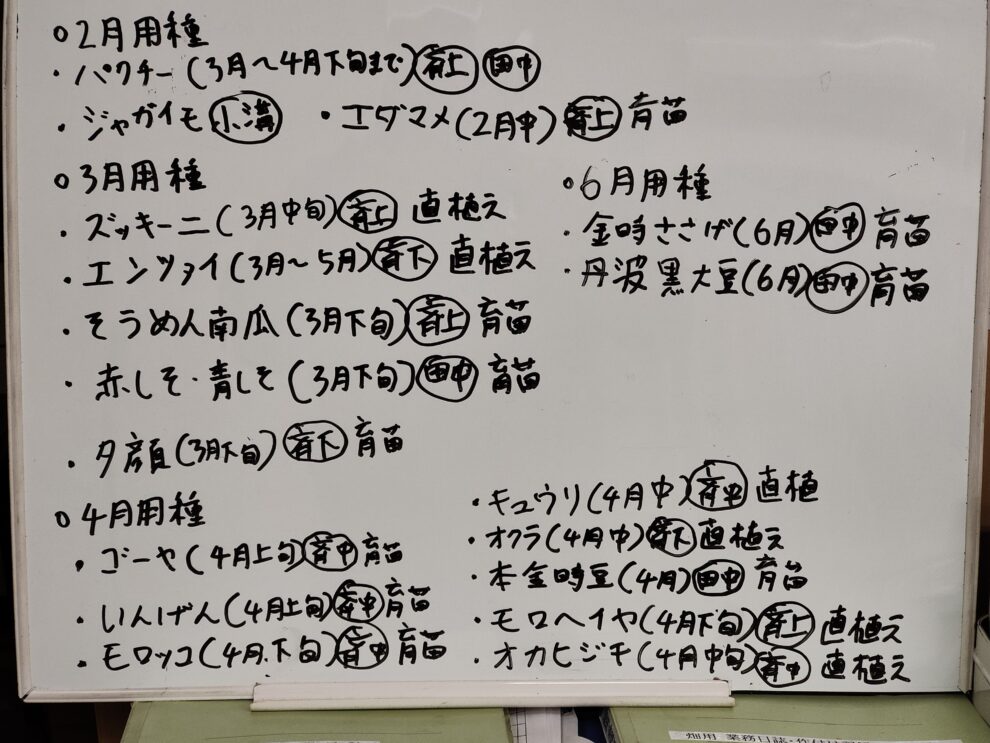 ○2月用種
・パクチー(3月〜4月下旬まで)斉上 田中
・ジャガイモ 小溝 ・エダマメ(2月中)斉上 育苗
○3月用種
・ズッキーニ(3月中旬)斉上 直植え
・エンツァイ(3月〜5月)斉下 直植え
・そうめん南瓜(3月下旬)斉上 育苗
・赤しそ・青しそ(3月下旬)田中 育苗
・夕顔(3月下旬)斉下 育苗
○6月用種
・金時ささげ(6月)田中 育苗
・丹波黒大豆(6月)田中 育苗
○4月用種
・ゴーヤ(4月上旬)斉中 育苗
・いんげん(4月上旬)斉中 育苗
・モロッコ(4月.下旬)斉中 育苗
・キュウリ(4月中)斉中 直植
・オクラ(4月中)斉下 直植え
・本金時豆(4月)田中 育苗
・モロヘイヤ(4月下旬)斉上 直植え
・オカヒジキ(4月中旬)斉中 直植え
畑用 業務日誌・作付け